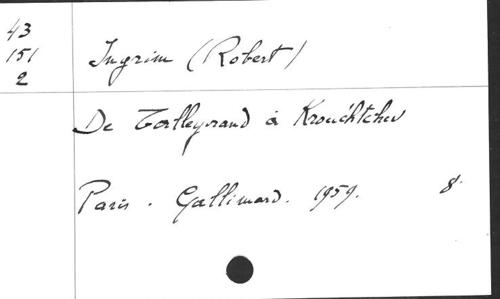 43
151
2
Ingrim (Robert)
De Talleyrand à Krouchtchev
Paris. Gallimard. 1959. 8°